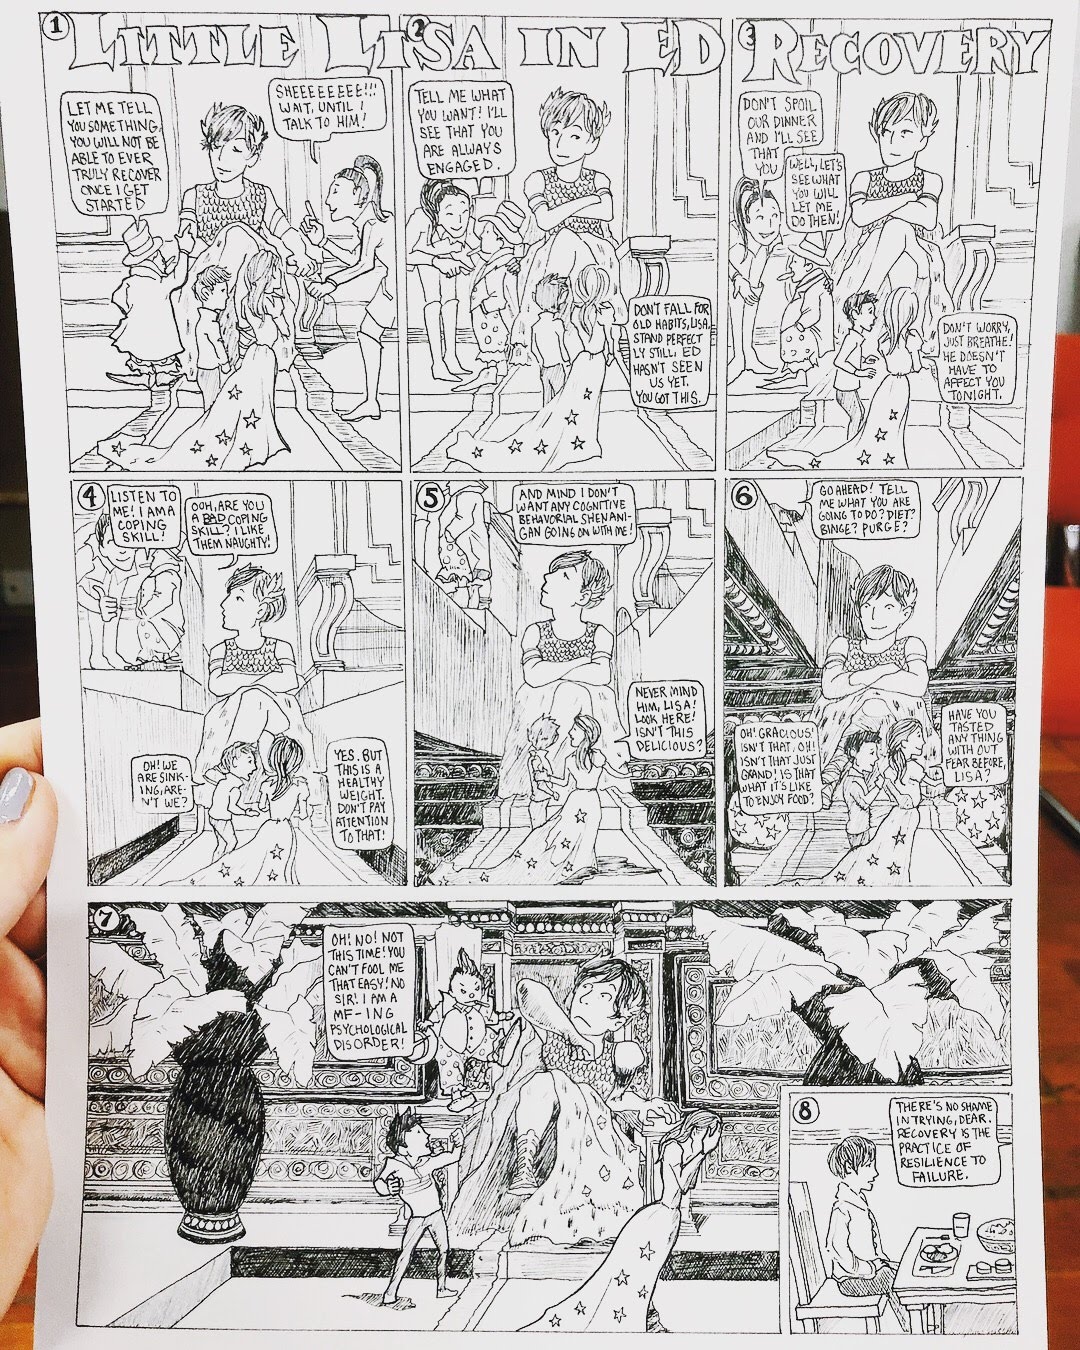 LITTLE LISA IN ED RECOVERY
1
LET ME TELL
YOU SOMETHING,
YOU WILL NOT BE
ABLE TO EVER
TRULY RECOVER
ONCE I GET
STARTED
SHEEEEEEEE!!!
WAIT, UNTIL I
TALK TO HIM!
2
TELL ME WHAT
YOU WANT! I'LL
SEE THAT YOU
ARE ALWAYS
ENGAGED.
DON'T FALL FOR
OLD HABITS, LISA.
STAND PERFECT
LY STILL. ED
HASN'T SEEN
US YET.
YOU GOT THIS.
3
DON'T SPOIL
OUR DINNER
AND I'LL SEE
THAT
YOU
WELL, LET'S
SEE WHAT
YOU WILL
LET ME
DO THEN!
DON'T WORRY,
JUST BREATHE!
HE DOESN'T
HAVE TO
AFFECT YOU
TONIGHT.
4
LISTEN TO
ME! I AM A
COPING
SKILL!
OOH, ARE YOU
A BAD COPING
SKILL? I LIKE
THEM NAUGHTY!
OH! WE
ARE SINK-
ING, ARE-
N'T WE?
YES. BUT
THIS IS A
HEALTHY
WEIGHT.
DON'T PAY
ATTENTION
TO THAT!
5
AND MIND I DON'T
WANT ANY COGNITIVE
BEHAVORIAL SHENANI-
GAN GOING ON WITH ME!
NEVER MIND
HIM, LISA!
LOOK HERE!
ISN'T THIS
DELICIOUS?
6
GO AHEAD! TELL
ME WHAT YOU ARE
GOING TO DO? DIET?
BINGE? PURGE?
OH! GRACIOUS!
ISN'T THAT, OH!
ISN'T THAT JUST
GRAND! IS THAT
WHAT IT'S LIKE
TO ENJOY FOOD?
HAVE YOU
TASTED
ANY THING
WITH OUT
FEAR BEFORE,
LISA?
7
OH! NO! NOT
THIS TIME! YOU
CAN'T FOOL ME
THAT EASY! NO
SIR! I AM A
MF-ING
PSYCHOLOGICAL
DISORDER!
8
THERE'S NO SHAME
IN TRYING, DEAR.
RECOVERY IS THE
PRACTICE OF
RESILIENCE TO
FAILURE.